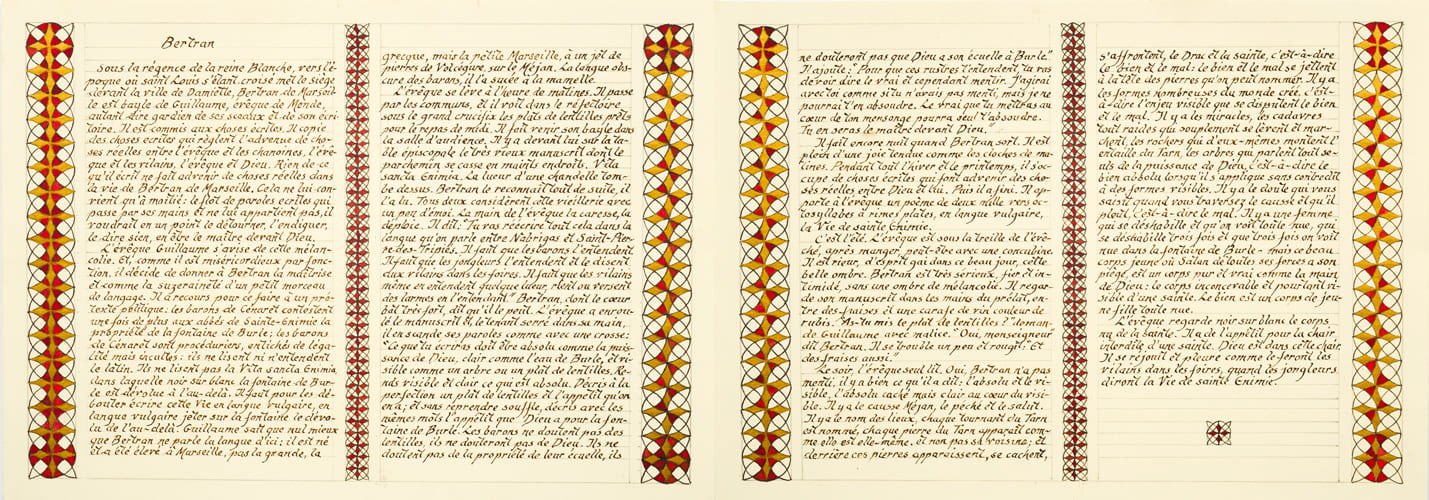 Bertran
Sous la régence de la reine Blanche, vers l'é-
poque où saint Louis s'étant croisé met le siège
devant la ville de Damiette, Bertran de Marseil-
le est bayle de Guillaume, évêque de Mende,
autant dire gardien de ses sceaux et de son écri-
toire. Il est commis aux choses écrites. Il copie
des choses écrites qui règlent l'advenue de cho-
ses réelles entre l'évêque et les chanoines, l'évê-
que et les vilains, l'évêque et Dieu. Rien de ce
qu'il écrit ne fait advenir de choses réelles dans
la vie de Bertran de Marseille. Cela ne lui con-
vient qu'à moitié: le flot de paroles écrites qui
passe par ses mains et ne lui appartient pas, il
voudrait en un point le détourner, l'endiguer,
le dire sien, en être le maître devant Dieu.
L'évêque Guillaume s'avise de cette mélan-
colie. Et, comme il est miséricordieux par fonc-
tion, il décide de donner à Bertran la maîtrise
et comme la suzeraineté d'un petit morceau
de langage. Il a recours pour ce faire à un pré-
texte politique: les barons de Cénaret contestent
une fois de plus aux abbés de Sainte-Enimie la
propriété de la fontaine de Burle; les barons
de Cénaret sont procéduriers, entichés de léga-
lité mais incultes: ils ne lisent ni n'entendent
le latin. Ils ne lisent pas la Vita sancta Enimia
dans laquelle noir sur blanc la fontaine de Bur-
le est dévolue à l'au-delà. Il faut pour les dé-
bouter écrire cette Vie en langue vulgaire, en
langue vulgaire jeter sur la fontaine le dévolu
de l'au-delà. Guillaume sait que nul mieux
que Bertran ne parle la langue d'ici; il est né
et a été élevé à Marseille, pas la grande, la
grecque, mais la petite Marseille, à un jet de
pierres de Volcégure, sur le Méjan. La langue obs-
cure des barons, il l'a sucée à la mamelle.
L'évêque se lève à l'heure de matines. Il passe
par les communs, et il voit dans le réfectoire
sous le grand crucifix les plats de lentilles prêts
pour le repas de midi. Il fait venir son bayle dans
la salle d'audience. Il y a devant lui sur la ta-
ble épiscopale le très vieux manuscrit dont le
parchemin se casse en maints endroits, Vita
sancta Enimia. La lueur d'une chandelle tom-
be dessus. Bertran le reconnaît tout de suite, il
l'a lu. Tous deux considèrent cette vieillerie avec
un peu d'émoi. La main de l'évêque la caresse, la
déploie. Il dit: "Tu vas réécrire tout cela dans la
langue qu'on parle entre Nabrigas et Saint-Pier-
re-des-Tripiés. Il faut que les barons l'entendent.
Il faut que les jongleurs l'entendent et le disent
aux vilains dans les foires. Il faut que les vilains
même en entendent quelque lueur, rient ou versent
des larmes en l'entendant." Bertran, dont le cœur
bat très fort, dit qu'il le peut. L'évêque a enrou-
lé le manuscrit et, le tenant serré dans sa main,
il en scande ses paroles comme avec une crosse:
"Ce que tu écriras doit être absolu comme la puis-
sance de Dieu, clair comme l'eau de Burle, et vi-
sible comme un arbre ou un plat de lentilles. Re-
nds visible et clair ce qui est absolu. Décris à la
perfection un plat de lentilles et l'appétit qu'on
en a; et sans reprendre souffle, décris avec les
mêmes mots l'appétit que Dieu a pour la fon-
taine de Burle. Les barons ne doutent pas des
lentilles, ils ne douteront pas de Dieu. Ils ne
doutent pas de la propriété de leur écuelle, ils
ne douteront pas que Dieu a son écuelle à Burle."
Il ajoute: "Pour que ces rustres t'entendent, tu vas
devoir dire le vrai et cependant mentir. J'agirai
avec toi comme si tu n'avais pas menti, mais je ne
pourrai t'en absoudre. Le vrai que tu mettras au
cœur de ton mensonge pourra seul t'absoudre.
Tu en seras le maître devant Dieu."
Il fait encore nuit quand Bertran sort. Il est
plein d'une joie tendue comme les cloches de ma-
tines. Pendant tout l'hiver et le printemps, il s'oc-
cupe de choses écrites qui font advenir des cho-
ses réelles entre Dieu et lui. Puis il a fini. Il ap-
porte à l'évêque un poème de deux mille vers oc-
tosyllabes à rimes plates, en langue vulgaire,
la Vie de sainte Enimie.
C'est l'été. L'évêque est sous la treille de l'évê-
ché, après manger, peut-être avec une concubine.
Il est rieur, d'esprit gai dans ce beau jour, cette
belle ombre. Bertran est très sérieux, fier et in-
timidé, sans une ombre de mélancolie. Il regar-
de son manuscrit dans les mains du prélat, en-
tre des fraises et une carafe de vin couleur de
rubis. "As-tu mis le plat de lentilles?" deman-
de Guillaume avec malice. "Oui, monseigneur"
dit Bertran. Il se trouble un peu et rougit: "Et
des fraises aussi."
Le soir, l'évêque seul lit. Oui, Bertran n'a pas
menti, il y a bien ce qu'il a dit: l'absolu et le vi-
sible, l'absolu caché mais clair au cœur du visi-
ble. Il y a le causse Méjan, le péché et le salut.
Il y a le nom des lieux, chaque tournant du Tarn
est nommé, chaque pierre du Tarn apparaît com-
me elle est elle-même, et non pas sa voisine; et
derrière ces pierres apparaissent, se cachent,
s'affrontent, le Drac et la sainte, c'est-à-dire
le bien et le mal: le bien et le mal se jettent
à la tête des pierres qu'on peut nommer. Il y a
les formes nombreuses du monde créé, c'est-
à-dire l'enjeu visible que se disputent le bien
et le mal. Il y a les miracles, les cadavres
tout raides qui souplement se lèvent et mar-
chent, les rochers qui d'eux-mêmes montent l'
entaille du Tarn, les arbres qui parlent tout se-
uls de la puissance de Dieu, c'est-à-dire le
bien absolu lorsqu'il s'applique sans contredit
à des formes visibles. Il y a le doute qui vous
saisit quand vous traversez le causse et qu'il
pleut, c'est-à-dire le mal. Il y a une femme
qui se déshabille et qu'on voit toute nue, qui
se déshabille trois fois et que trois fois on voit
nue dans la fontaine de Burle — mais ce beau
corps jeune où Satan de toutes ses forces a son
piège, est un corps pur et vrai comme la main
de Dieu: le corps inconcevable et pourtant vi-
sible d'une sainte. Le bien est un corps de jeu-
ne fille toute nue.
L'évêque regarde noir sur blanc le corps
de la sainte. Il a de l'appétit pour la chair
interdite d'une sainte. Dieu est dans cette chair.
Il se réjouit et pleure comme le feront les
vilains dans les foires, quand les jongleurs
diront la Vie de sainte Enimie.